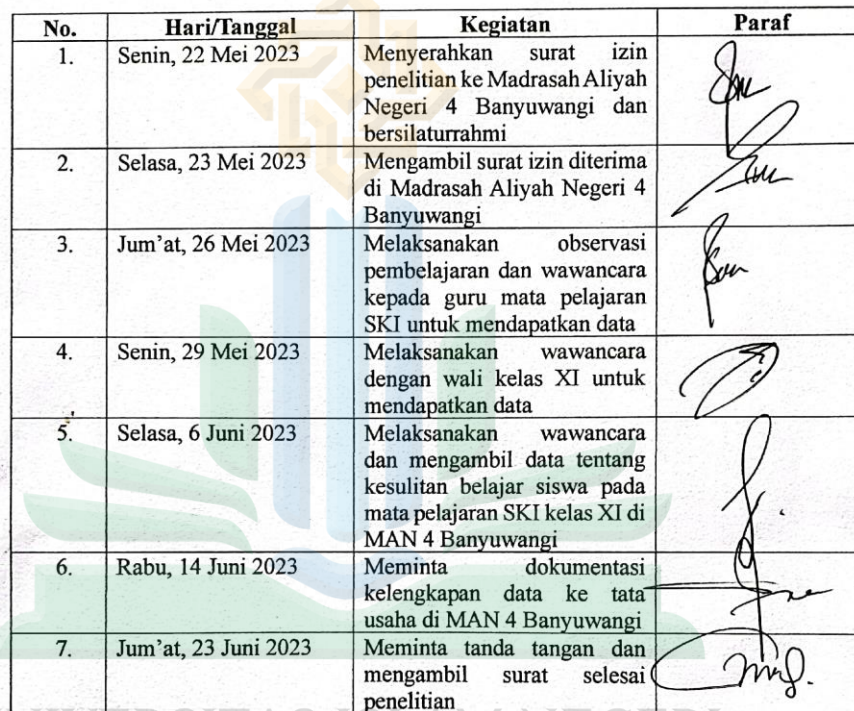 No. Hari/Tanggal Kegiatan Paraf
1. Senin, 22 Mei 2023 Menyerahkan surat izin
penelitian ke Madrasah Aliyah
Negeri 4 Banyuwangi dan
bersilaturrahmi
2. Selasa, 23 Mei 2023 Mengambil surat izin diterima
di Madrasah Aliyah Negeri 4
Banyuwangi
3. Jum'at, 26 Mei 2023 Melaksanakan observasi
pembelajaran dan wawancara
kepada guru mata pelajaran
SKI untuk mendapatkan data
4. Senin, 29 Mei 2023 Melaksanakan wawancara
dengan wali kelas XI untuk
mendapatkan data
5. Selasa, 6 Juni 2023 Melaksanakan wawancara
dan mengambil data tentang
kesulitan belajar siswa pada
mata pelajaran SKI kelas XI di
MAN 4 Banyuwangi
6. Rabu, 14 Juni 2023 Meminta dokumentasi
kelengkapan data ke tata
usaha di MAN 4 Banyuwangi
7. Jum'at, 23 Juni 2023 Meminta tanda tangan dan
mengambil surat selesai
penelitian